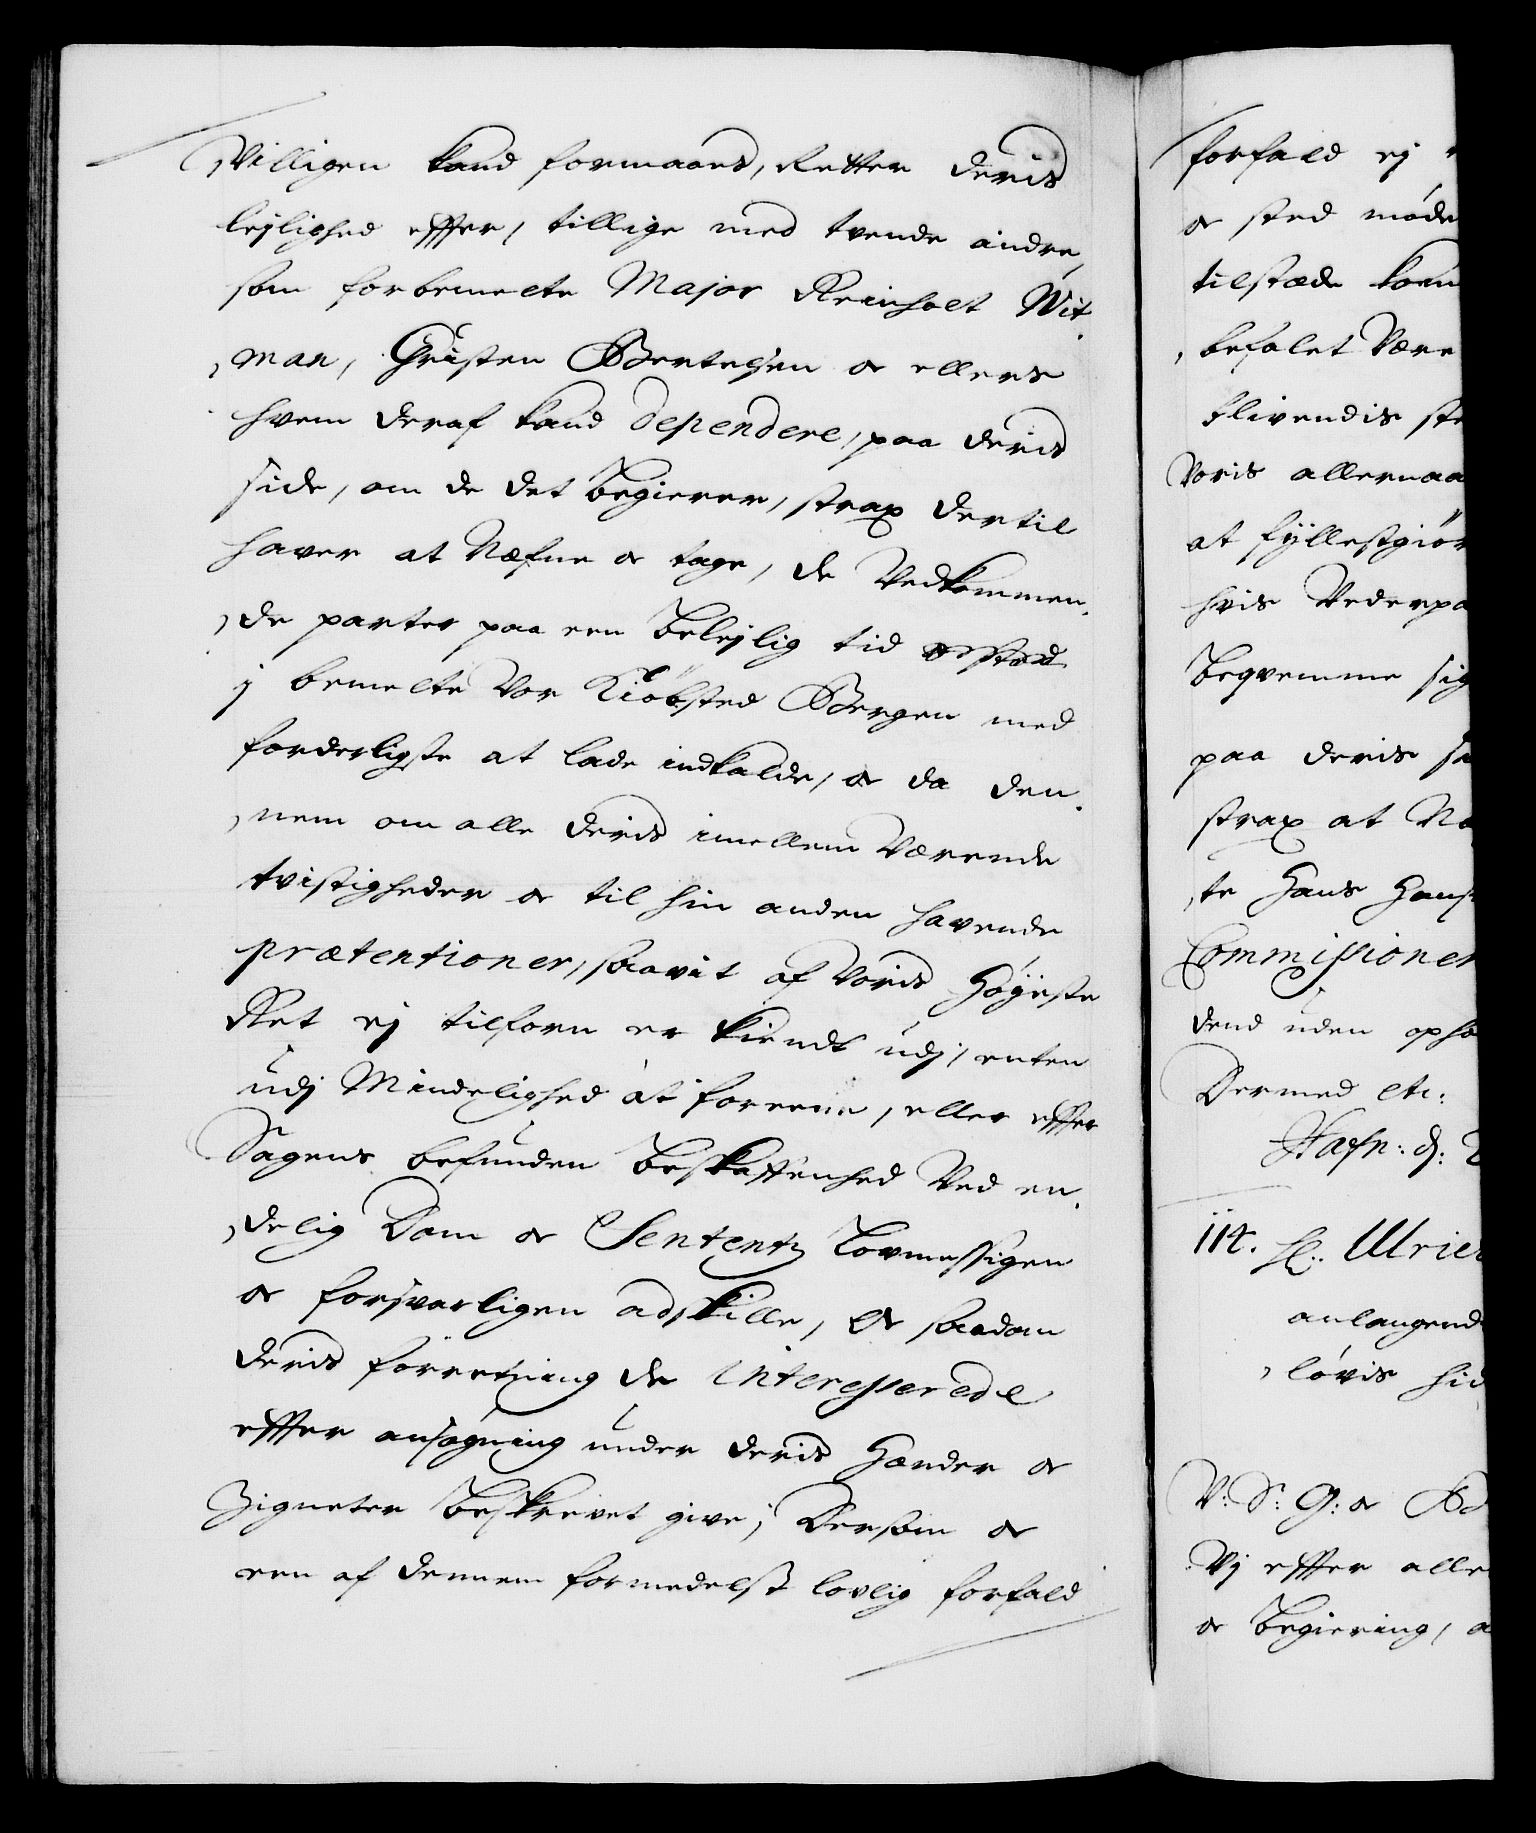 Villigen kand formaaes, Retter deris
lejlighed effter, tillige med tvende andre,
som forbemelte Major Reinholt Wit
man, Christen Bertelsen og ellers
hvem deraf kand dependere, paa deris
side, om de det begierer, strax dertil
haver at Næfne og tage, de Vedkommen
de parter paa een belejlig tid og sted
j bemelte Vor Kiöbsted Bergen med
forderligste at lade indkalde, og da den
nem om alle deris imellem Værende
tvistigheder og til hin anden havende
prætentioner, saavit af Voris Höyeste
Ret ej tilforn er kiendt udj, enten
udj Mindelighed at foreene, eller effter
Sagens befunden beskaffenhed Ved en
delig Dom og Sententz lovmessigen
og forsvarligen adskille, og saadan
deris forretning de interesserede
effter ansøgning under deris Hænder og
Zigneter beskrevet give; Dersom og
een af dennem formedelst lovlig forfald
forfald ej
og sted møde
tilstæde kom
befalet Være
blivendis ste
Voris allernaa
at fyllestgiør
hvis Vederpa
beqvemme sig
paa deris
strax at Næ
te Hans Hans
Commissioner
dend uden opho
Dermed etc:
Hafn: d:
114. Sl: Ulric
anlangend
løvis hid
V: S: G: og
Vj effter alle
og begiering,